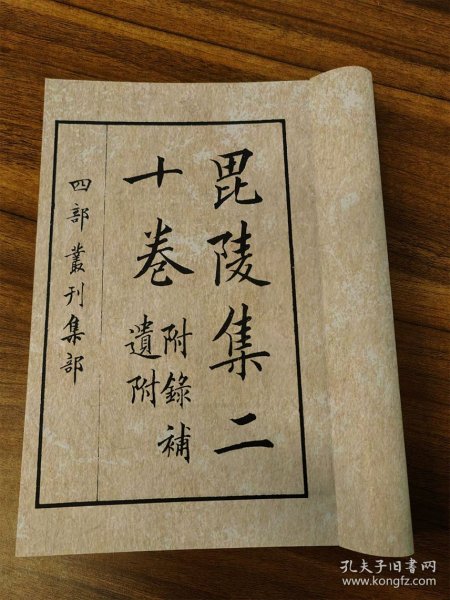 毘陵集二
十卷
附錄補
遺附
四部叢刊集部
孔夫子旧书网
www.kongfz.com